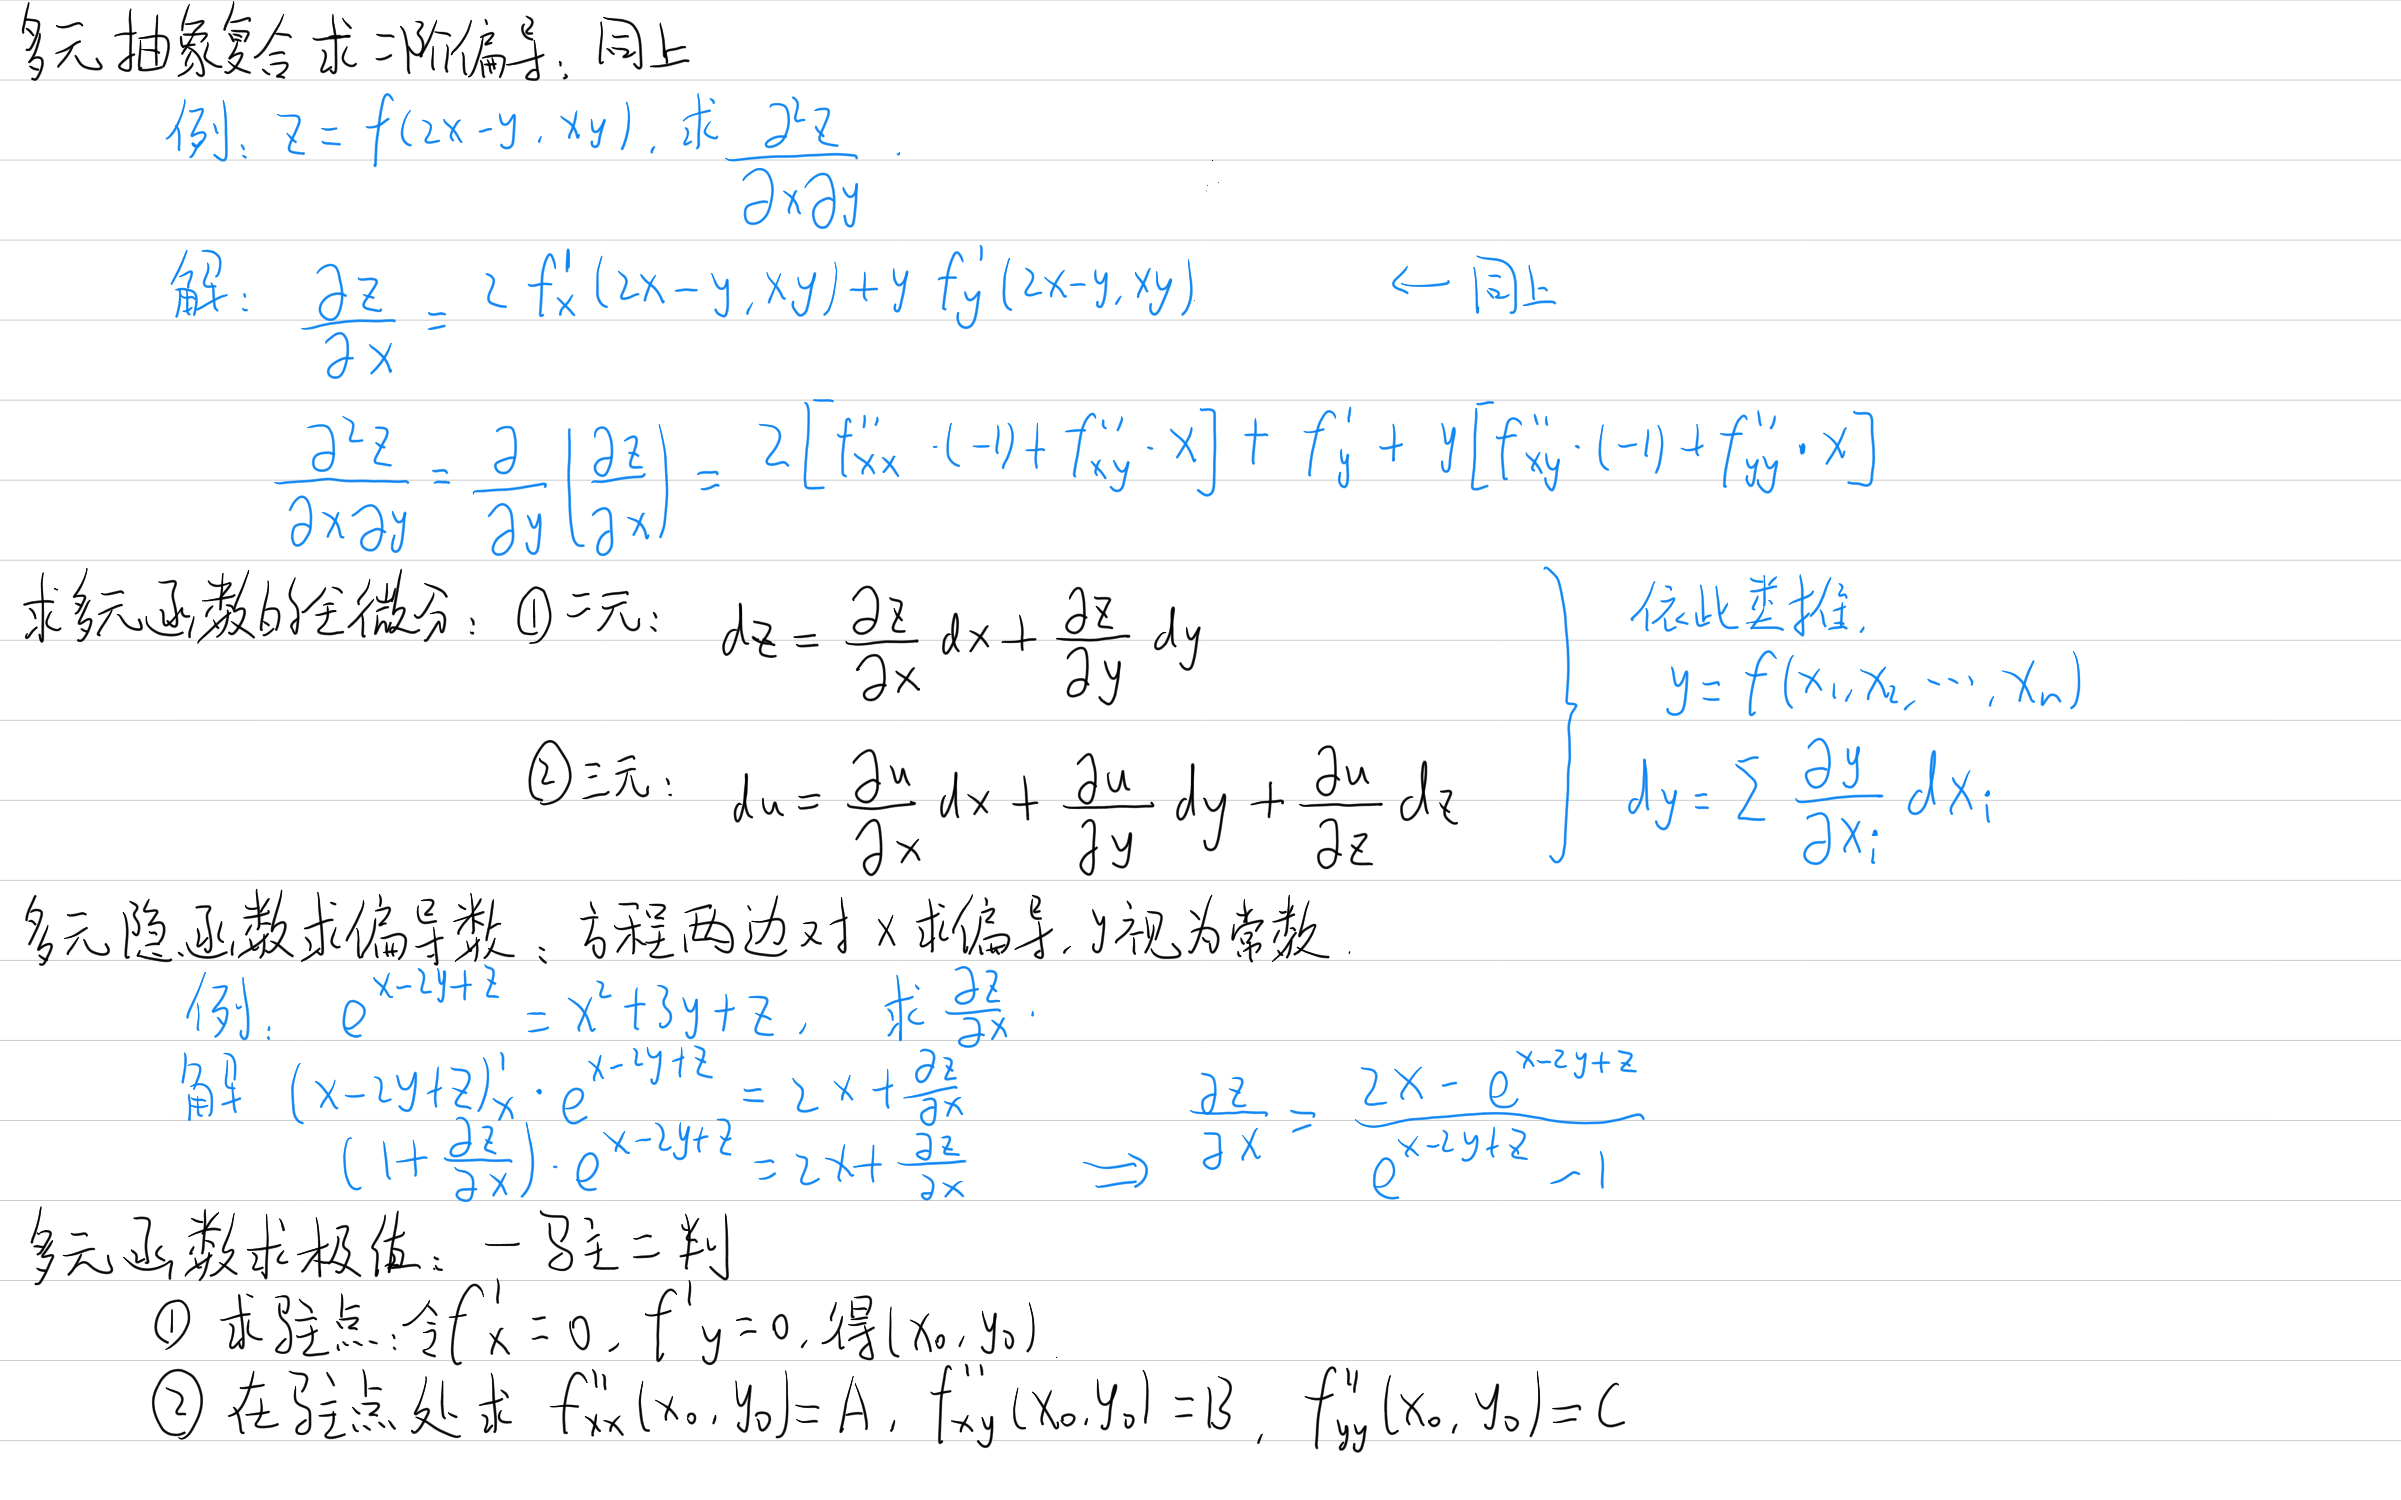 多元抽象复合求二阶偏导：同上
例：z = f(2x-y, xy), 求 ∂²z/∂x∂y.
解： ∂z/∂x = 2f'x(2x-y, xy) + y f'y(2x-y, xy) ← 同上
∂²z/∂x∂y = ∂/∂y (∂z/∂x) = 2[f''xx·(-1) + f''xy·x] + f'y + y[f''xy·(-1) + f''yy·x]
求多元函数的全微分：①二元： dz = ∂z/∂x dx + ∂z/∂y dy
②三元： du = ∂u/∂x dx + ∂u/∂y dy + ∂u/∂z dz
依此类推,
y = f(x₁, x₂, ⋯, xₙ)
dy = Σ ∂y/∂xᵢ dxᵢ
多元隐函数求偏导数：方程两边对x求偏导, y视为常数.
例： e^(x-2y+z) = x²+3y+z, 求 ∂z/∂x.
解 (x-2y+z)'x · e^(x-2y+z) = 2x + ∂z/∂x
(1+∂z/∂x)·e^(x-2y+z) = 2x + ∂z/∂x ⇒ ∂z/∂x = (2x - e^(x-2y+z))/(e^(x-2y+z) - 1)
多元函数求极值：一驻二判
① 求驻点：令f'x = 0, f'y = 0, 得(x₀, y₀)
② 在驻点处求 f''xx(x₀, y₀) = A, f''xy(x₀, y₀) = B, f''yy(x₀, y₀) = C